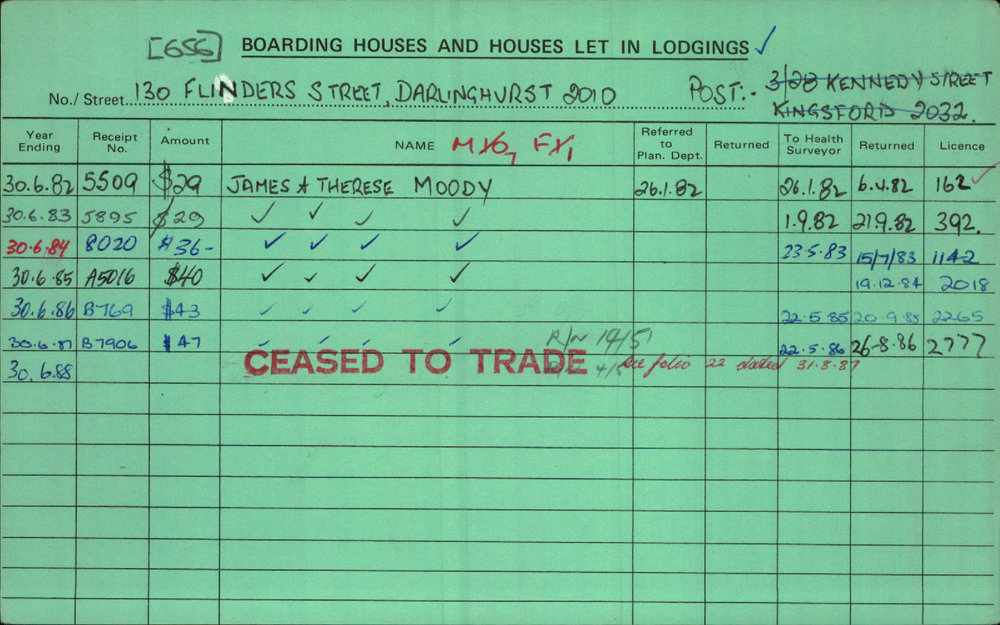 [656] BOARDING HOUSES AND HOUSES LET IN LODGINGS ✓
No./Street 130 FLINDERS STREET, DARLINGHURST 2010 POST:- 3/28 KENNEDY STREET
KINGSFORD 2032.
Year Ending Receipt No. Amount NAME Referred to Plan. Dept. Returned To Health Surveyor Returned Licence
30.6.82 5509 $29 JAMES & THERESE MOODY 26.1.82 26.1.82 6.4.82 162 ✓
30.6.83 5895 $29 ✓ ✓ ✓ ✓ 1.9.82 21.9.82 392.
30.6.84 8020 $36- ✓ ✓ ✓ ✓ 23.5.83 15/7/83 1142
30.6.85 A5016 $40 ✓ ✓ ✓ ✓ 19.12.84 2018
30.6.86 B769 $43 ✓ ✓ ✓ ✓ 22.5.85 20.9.85 2265
30.6.87 B7906 $47 ✓ ✓ ✓ ✓ R/N 14/5 22.5.86 26-8.86 2777
30.6.88 CEASED TO TRADE See folio 22 dated 31.8.87